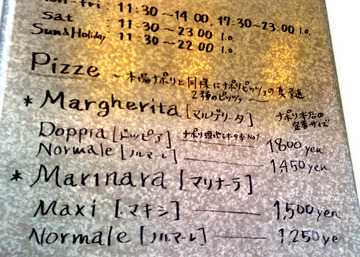 11:30~14:00, 17:30~23:00 l.o.
Sat 11:30~23:00 l.o.
Sun & Holiday 11:30~22:00 l.o.
Pizze ~本場ナポリと同様にナポリピッツァの真髄
2種のピッツァ~
* Margherita [マルゲリータ] ナポリ本店の
定番サイズ
Doppia [ドッピア] 1800 yen
Normale [ノルマーレ] 1450 yen
* Marinara [マリナーラ]
Maxi [マキシ] 1,500 yen
Normale [ノルマーレ] 1250 ye